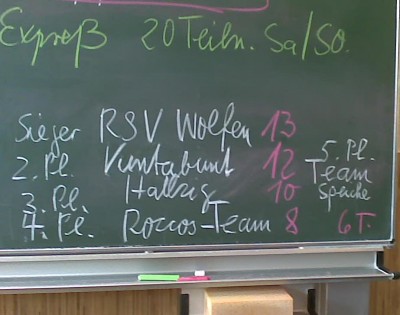 Expreß 20 Teiln. Sa/So.
Sieger RSV Wolfen 13
2. Pl. Vuntabunt 12
3. Pl. Hallzig 10
4. Pl. Roccos-Team 8
5. Pl.
Team
Speiche
6 T.